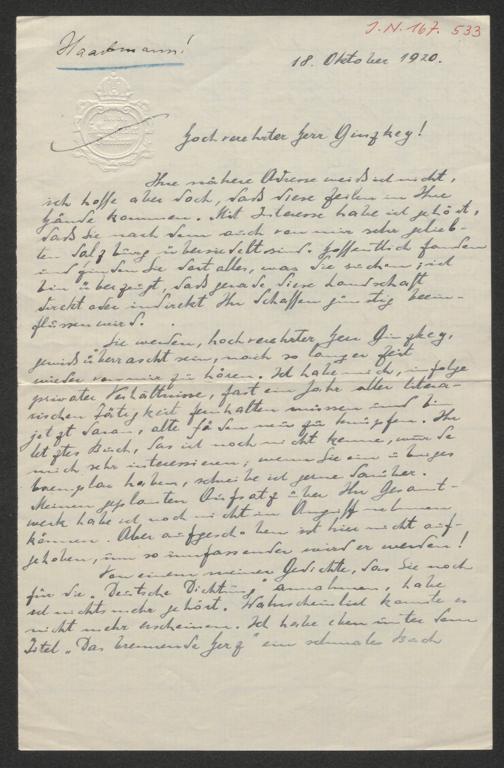 Haarbmann!
J.N. 167.533
18. Oktober 1920.
Hochverehrter Herr Ginzkey!
Ihre nähere Adresse weiß ich nicht,
ich hoffe aber doch, daß diese Zeilen in Ihre
Hände kommen. Mit Interesse habe ich gehört,
daß Sie nach dem auch von mir sehr gelieb-
ten Salzburg übersiedelt sind. Hoffentlich fanden
und finden Sie dort alles, was Sie suchen; ich
bin überzeugt, daß gerade diese Landschaft
direkt oder indirekt Ihr Schaffen günstig beein-
flussen wird.
Sie werden, hochverehrter Herr Ginzkey,
gewiß überrascht sein, nach so langer Zeit
wieder von mir zu hören. Ich habe mich, infolge
privater Verhältnisse, fast ein Jahr aller litera-
rischen Tätigkeit fernhalten müssen und bin
jetzt daran, alte Fäden neu zu knüpfen. Ihr
letztes Buch, das ich noch nicht kenne, würde
mich sehr interessieren; wenn Sie ein übriges
Exemplar haben, schreibe ich gerne darüber.
Meinen geplanten Aufsatz über Ihr Gesamt-
werk habe ich noch nicht in Angriff nehmen
können. Aber aufgeschoben ist hier nicht auf-
gehoben, um so umfassender wird er werden!
Von einem meiner Gedichte, das Sie noch
für die "Deutsche Dichtung" annahmen, habe
ich nichts mehr gehört. Wahrscheinlich konnte es
nicht mehr erscheinen. Ich habe eben unter dem
Titel „Das brennende Herz" ein schmales Buch